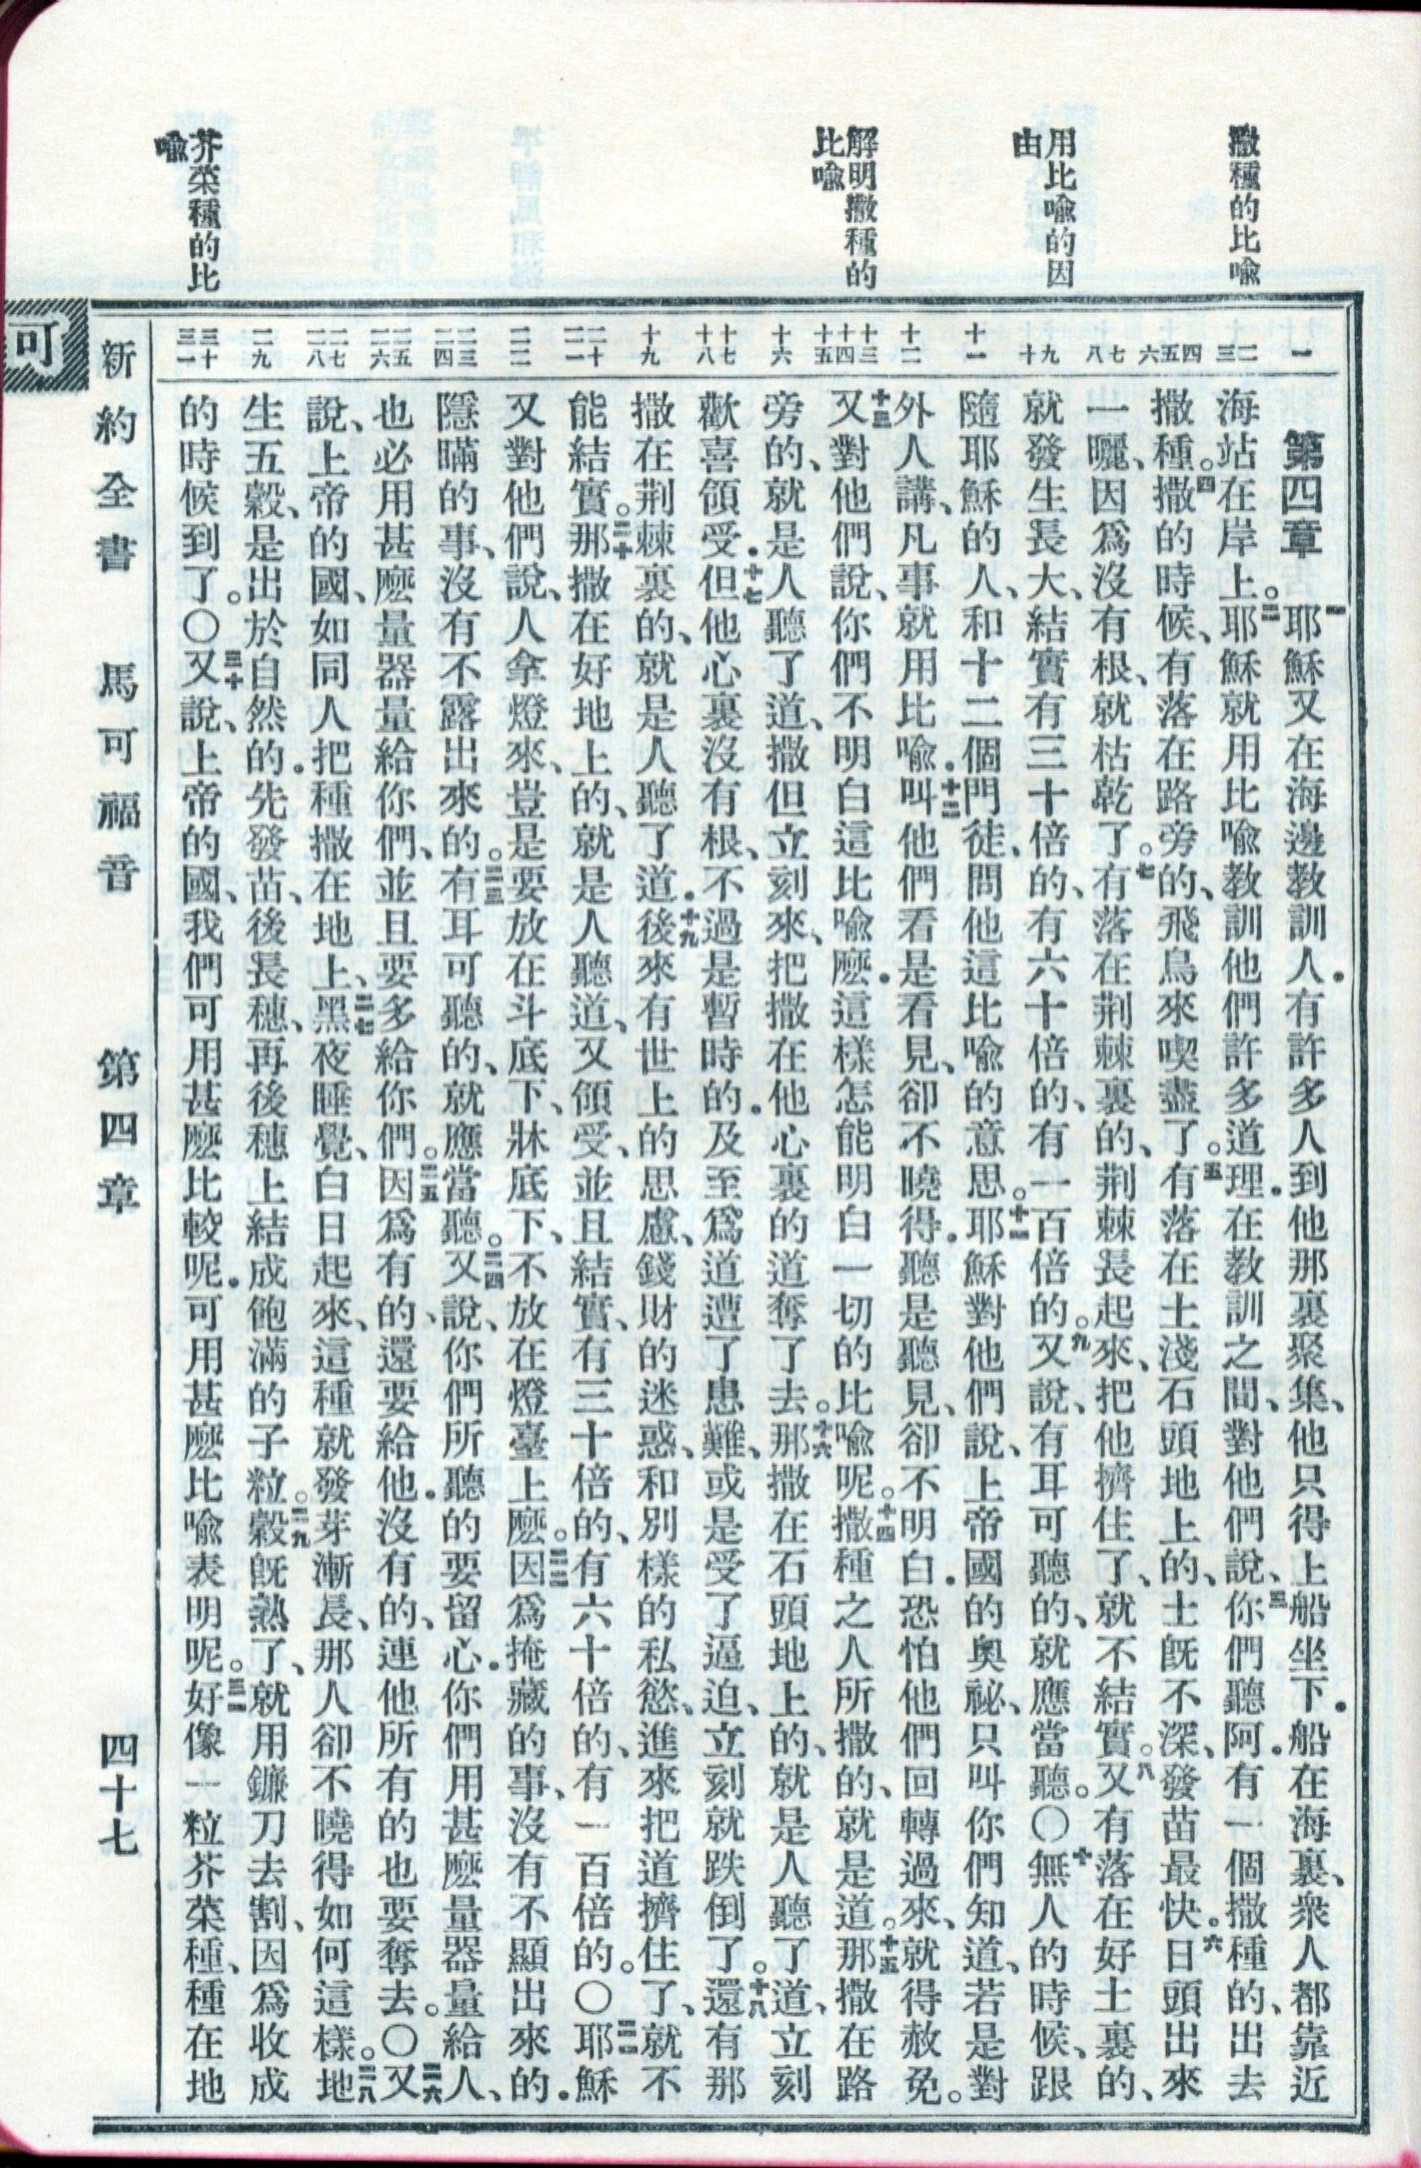 撒種的比喻
用比喻的因
由
解明撒種的
比喻
芥菜種的比
喻
一
二 三
四 五 六
七 八
九 十
十一
十二
十三 十四 十五
十六
十七 十八
十九
二十 二一
二二
二三 二四
二五 二六
二七 二八
二九
三十 三一
第四章 一耶穌又在海邊教訓人．有許多人到他那裏聚集、他只得上船坐下．船在海裏、衆人都靠近
海站在岸上。二耶穌就用比喻教訓他們許多道理．在教訓之間、對他們說、三你們聽阿．有一個撒種的、出去
撒種。四撒的時候、有落在路旁的、飛鳥來喫盡了。五有落在土淺石頭地上的、土旣不深、發苗最快。六日頭出來
一曬、因爲沒有根、就枯乾了。七有落在荆棘裏的、荆棘長起來、把他擠住了、就不結實。八又有落在好土裏的、
就發生長大、結實有三十倍的、有六十倍的、有一百倍的。九又說、有耳可聽的、就應當聽。〇十無人的時候、跟
隨耶穌的人、和十二個門徒、問他這比喻的意思。十一耶穌對他們說、上帝國的奥祕、只叫你們知道、若是對
外人講、凡事就用比喻．十二叫他們看是看見、卻不曉得．聽是聽見、卻不明白．恐怕他們回轉過來、就得赦免。
十三又對他們說、你們不明白這比喻麽．這樣怎能明白一切的比喻呢。十四撒種之人所撒的、就是道。十五那撒在路
旁的、就是人聽了道、撒但立刻來、把撒在他心裏的道奪了去。十六那撒在石頭地上的、就是人聽了道、立刻
歡喜領受．十七但他心裏沒有根、不過是暫時的．及至爲道遭了患難、或是受了逼迫、立刻就跌倒了。十八還有那
撒在荆棘裏的、就是人聽了道．十九後來有世上的思慮、錢財的迷惑、和別樣的私慾、進來把道擠住了、就不
能結實。二十那撒在好地上的、就是人聽道、又領受、並且結實、有三十倍的、有六十倍的、有一百倍的。〇二一耶穌
又對他們說、人拿燈來、豈是要放在斗底下、牀底下、不放在燈臺上麽。二二因爲掩藏的事、沒有不顯出來的．
隱瞞的事、沒有不露出來的。二三有耳可聽的、就應當聽。二四又說、你們所聽的要留心．你們用甚麽量器量給人、
也必用甚麽量器量給你們、並且要多給你們。二五因爲有的、還要給他．沒有的、連他所有的也要奪去。〇二六又
說、上帝的國、如同人把種撒在地上、二七黑夜睡覺、白日起來、這種就發芽漸長、那人卻不曉得如何這樣。二八地
生五穀、是出於自然的．先發苗、後長穗、再後穗上結成飽滿的子粒。二九穀旣熟了、就用鐮刀去割、因爲收成
的時候到了。〇三十又說、上帝的國、我們可用甚麽比較呢．可用甚麽比喻表明呢。三一好像一粒芥菜種、種在地
可
新約全書 馬可福音 第四章 四十七